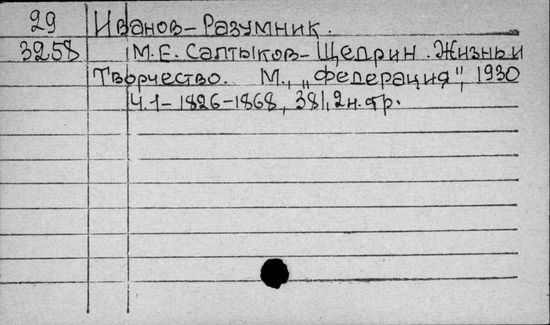 29 Иванов-Разумник.
3258 М.Е. Салтыков-Щедрин. Жизнь и
Творчество. М., „Федерация", 1930
Ч.1-1826-1868, 381,2н.стр.